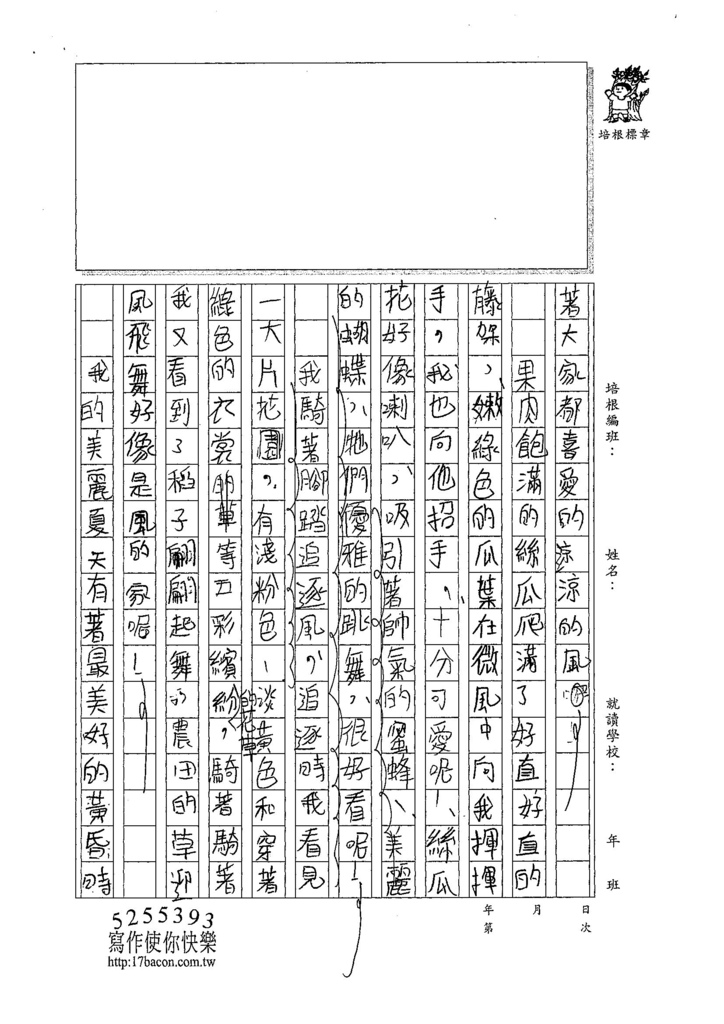 培根標章
培根編班：　姓名：　就讀學校：　年　班
著大家都喜愛的涼涼的風
果肉飽滿的絲瓜爬滿了好直好直的
藤架，嫩綠色的瓜葉在微風中向我揮揮
手，我也向他招手，十分可愛呢！絲瓜
花好像喇叭，吸引著帥氣的蜜蜂、美麗
的蝴蝶，牠們優雅的跳舞，很好看呢！
我騎著腳踏追逐風，追逐時我看見
一大片花園，有淺粉色、淡黃色和穿著
綠色的衣裳的草等五彩繽紛的花草，騎著騎著
我又看到了稻子翩翩起舞的農田的草迎
風飛舞好像是風的家呢！
我的美麗夏天有著最美好的黃昏時
年　月　日
第　次
5255393
寫作使你快樂
http:17bacon.com.tw